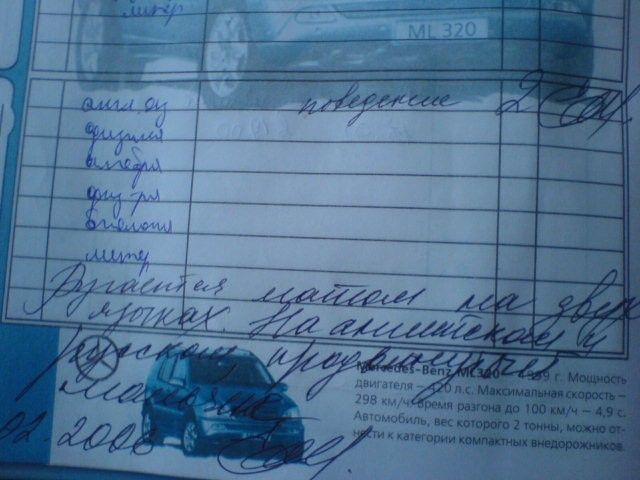 литер
ML 320
англ. яз поведение 2
физика
алгебра
физ-ра
биология
литер
Ругается матом на двух
языках. На английском и
русском продвинутый
мальчик
02.2006
Mercedes-Benz ML320 г. Мощность
двигателя – 420 л.с. Максимальная скорость –
298 км/ч. Время разгона до 100 км/ч – 4,9 с.
Автомобиль, вес которого 2 тонны, можно от-
нести к категории компактных внедорожников.